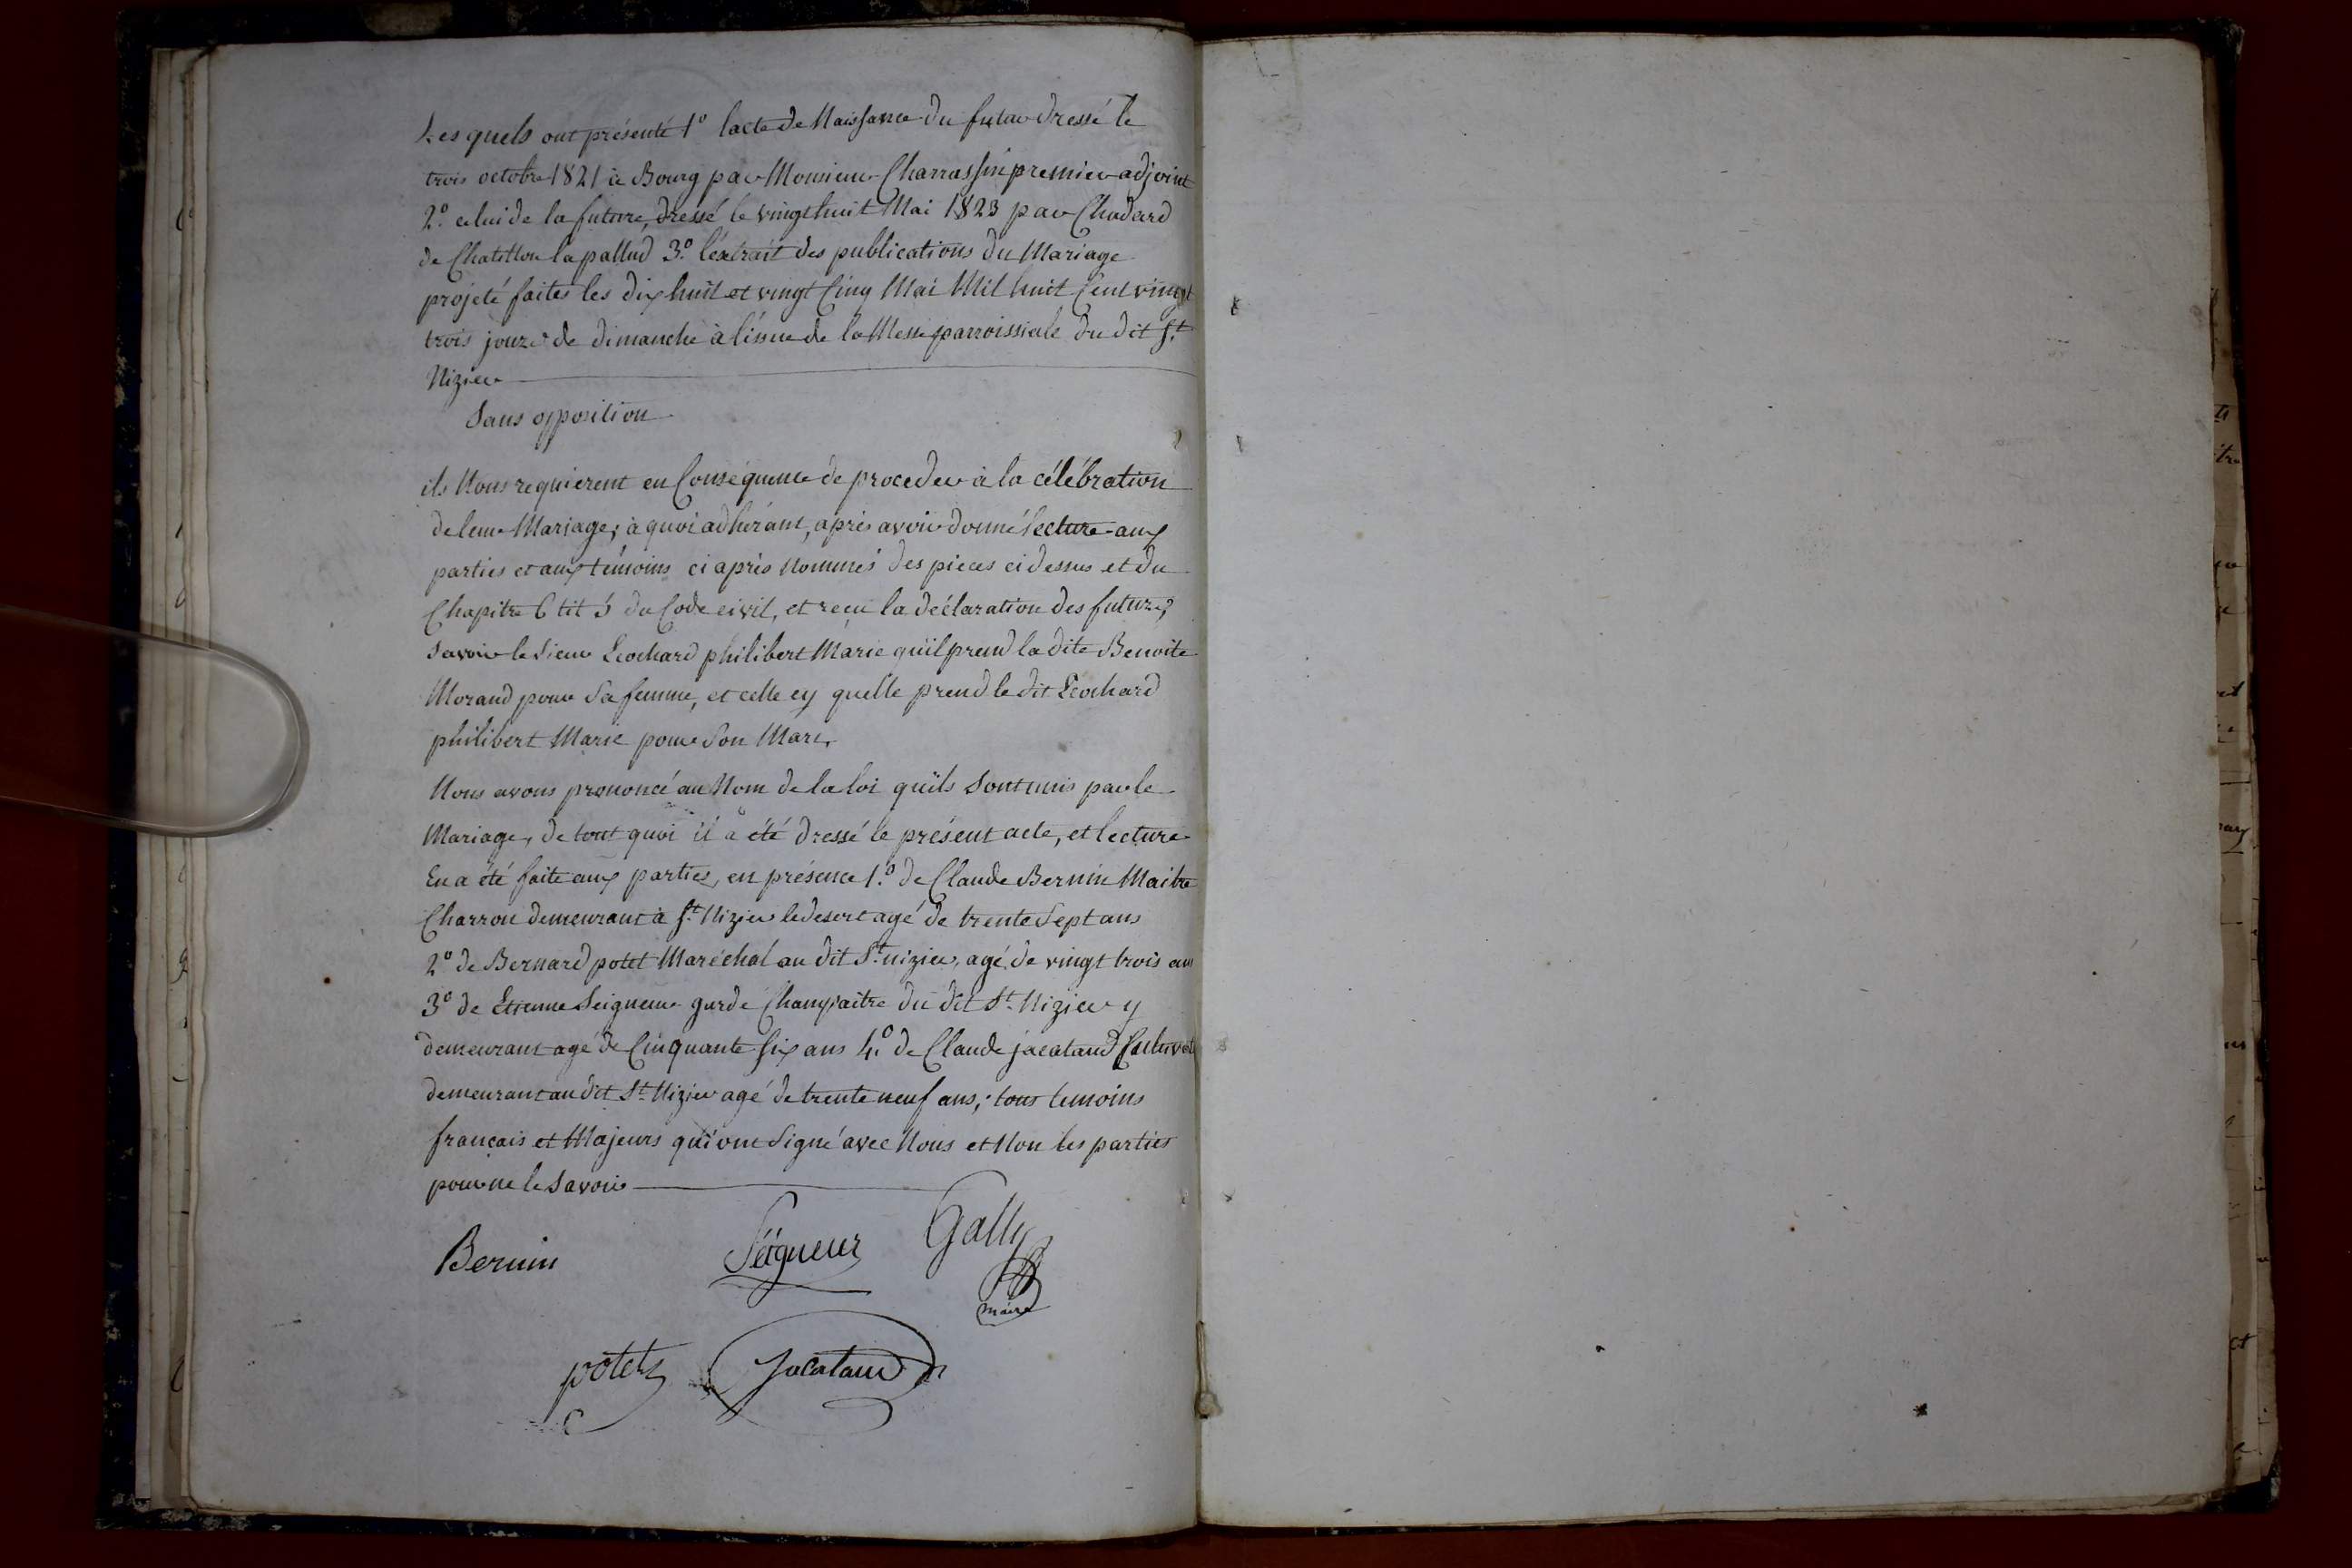 Les quels ont présenté 1° l'acte de Naissance du futur dressé le
trois octobre 1821 à Bourg par Monsieur Charrassin premier adjoint
2° celui de la future, dressé le vingt huit Mai 1823 par Chodard
de Chatillon la pallud 3° l'éxtrait des publications du Mariage
projeté faites les dix huit et vingt Cinq Mai Mil huit Cent vingt
trois jours de dimanche à l'issue de la Messe parroissiale du dit St
Nizier
Sans opposition
ils Nous requièrent en Conséquence de proceder à la célébration
de leur Mariage; à quoi adhérant, après avoir donné lecture aux
parties et aux témoins ci après Nommés des pieces ci dessus et du
Chapitre 6 tit 5 du Code civil, et reçu la déclaration des futurs;
Savoir le Sieur Léochard philibert Marie qu'il prend la dite Benoite
Morand pour Sa femme, et celle cy quelle prend le dit Léochard
philibert Marie pour Son Mari,
Nous avons prononcé au Nom de la loi qu'ils Sont unis par le
Mariage, de tout quoi il a été dressé le présent acte, et lecture
En a été faite aux parties, en présence 1.° de Claude Bernin Maitre
Charron demeurant à St Nizier le desert agé de trente Sept ans
2° de Bernard potet Maréchal au dit St nizier, agé de vingt trois ans
3° de Etienne Seigneur garde Champaitre du dit St Nizier y
demeurant agé de Cinquante Six ans 4.° de Claude jacataud Cultivat
demeurant au dit St Nizier agé de trente neuf ans; tous temoins
français et Majeurs qui ont Signé avec Nous et Non les parties
pour ne le Savoir
Bernin Séigneur Gally
maire
potet Jacataud